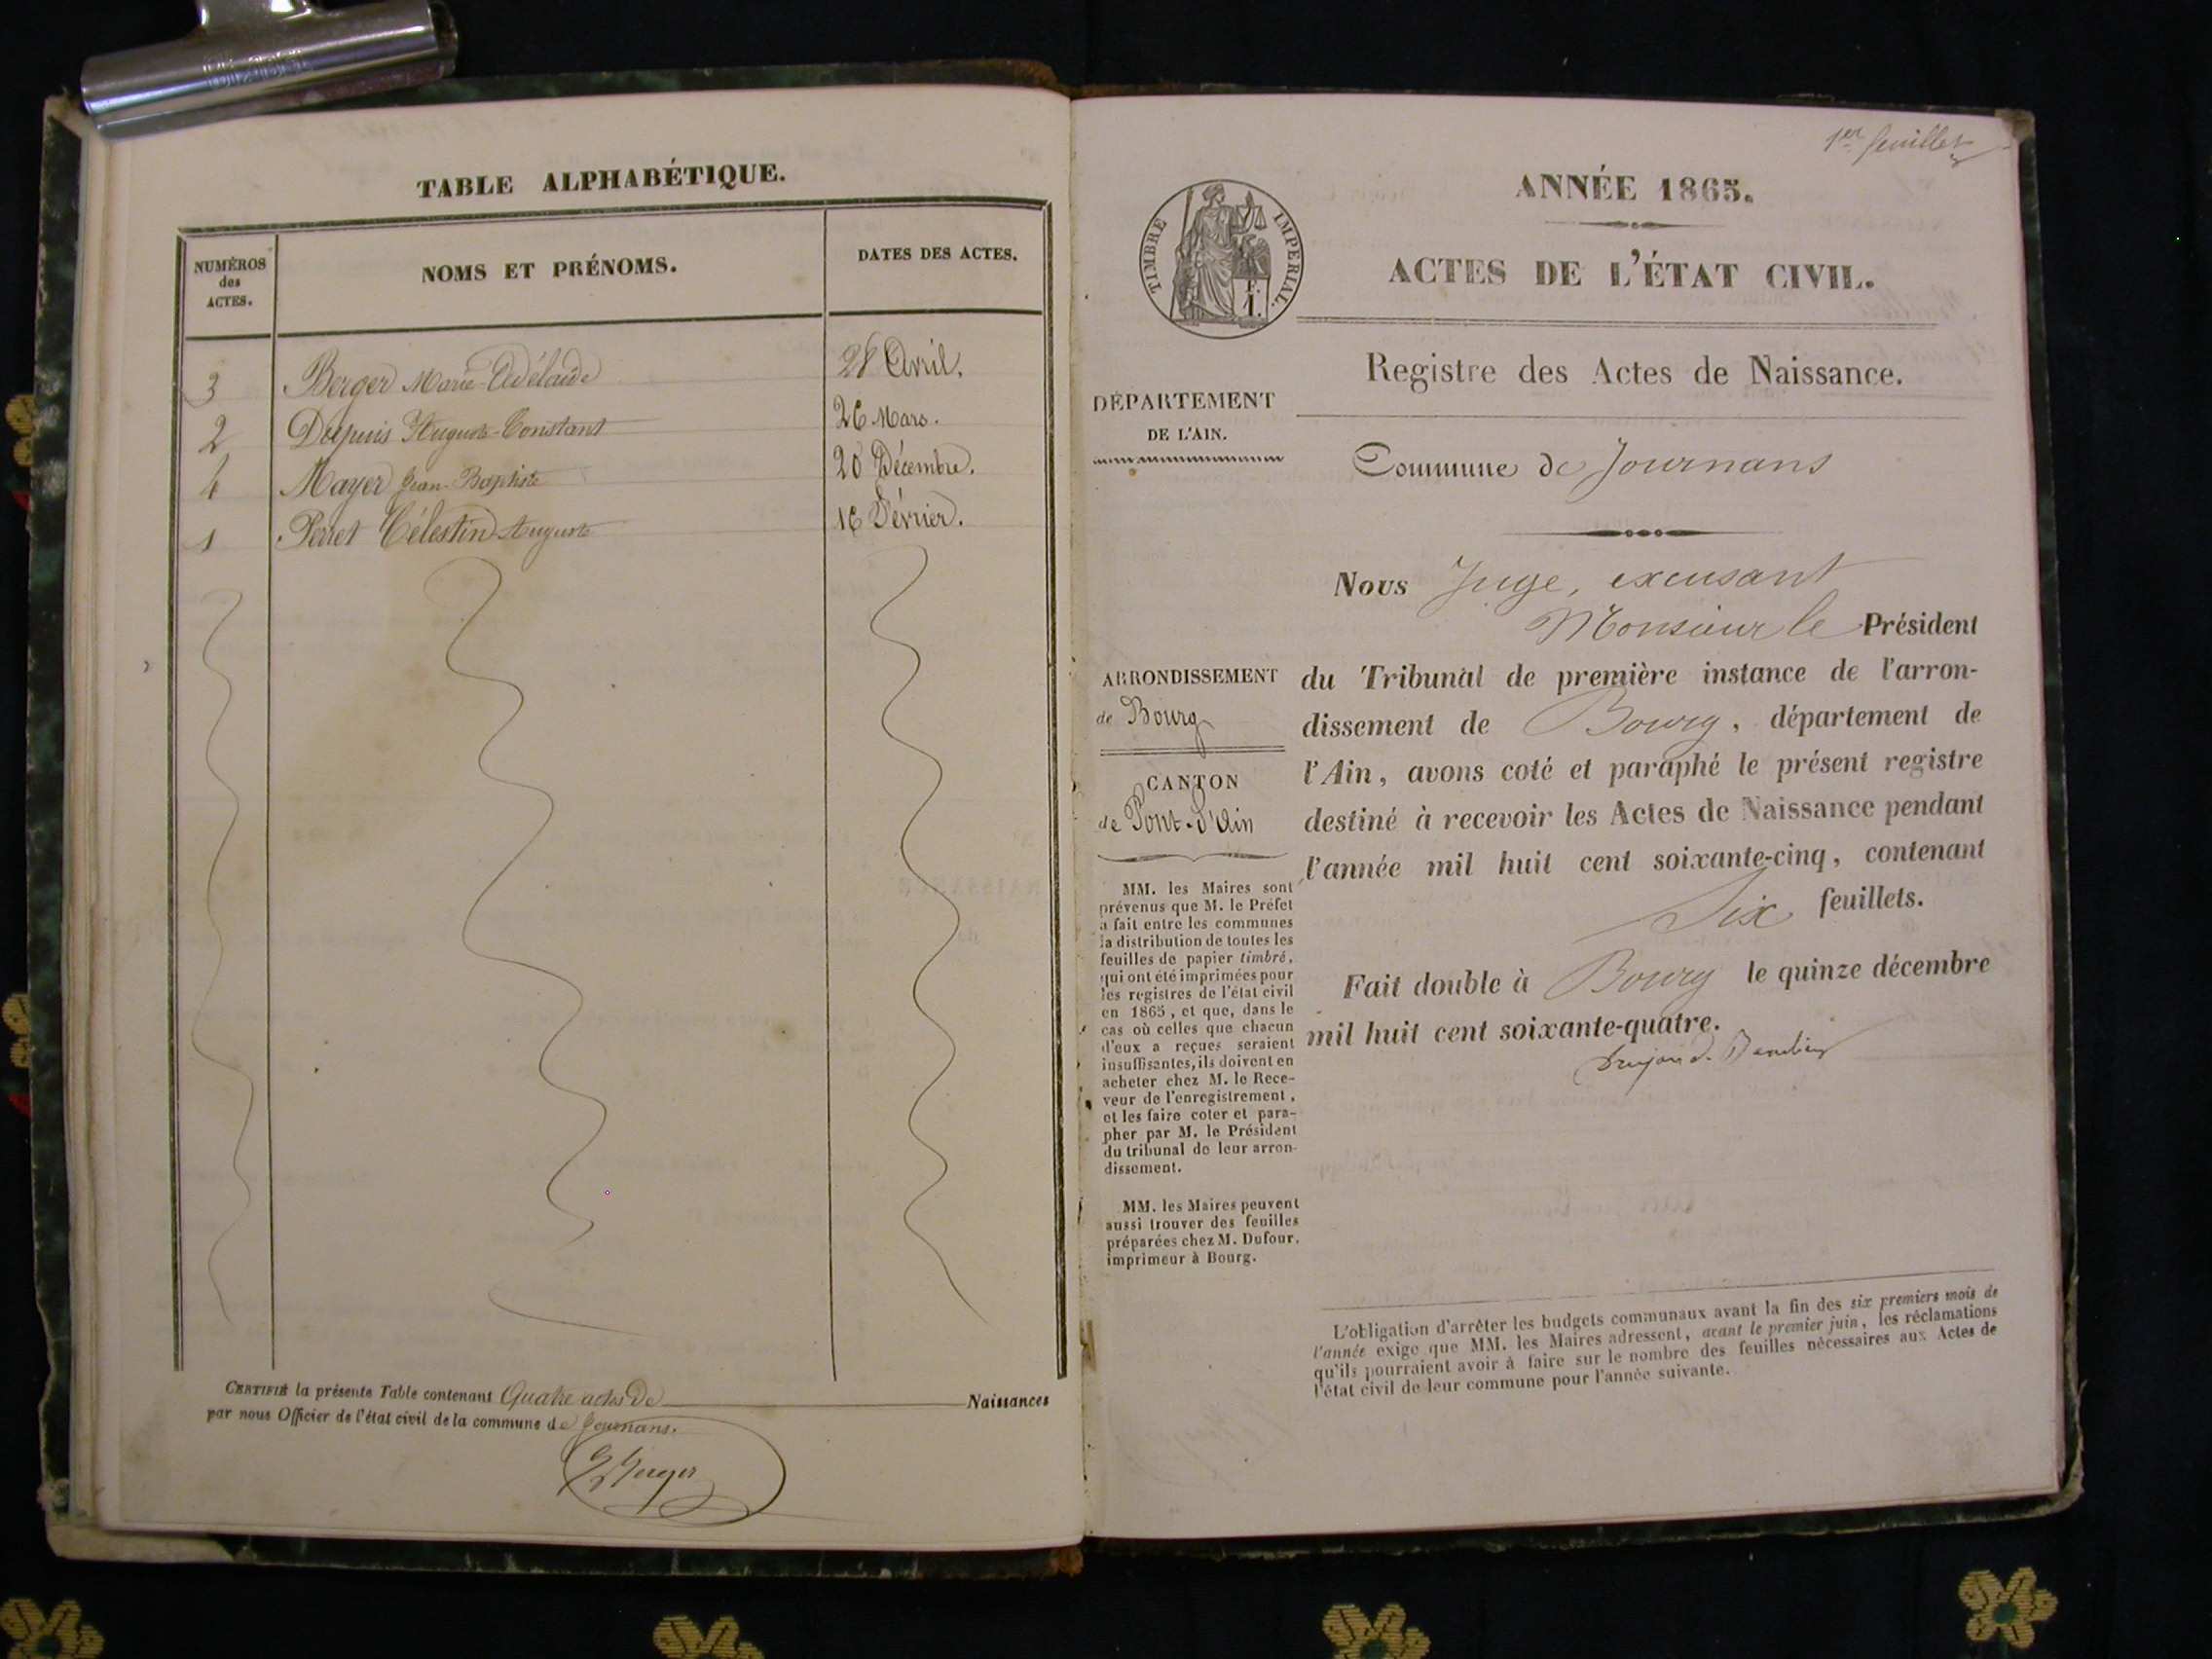 TABLE ALPHABÉTIQUE.
NUMÉROS
des
ACTES.
NOMS ET PRÉNOMS.
DATES DES ACTES.
3 Berger Marie-Adélaïde 28 Avril.
2 Dupuis Auguste-Constant 26 Mars.
4 Mayer Jean-Baptiste 20 Décembre.
1 Perret Célestin Auguste 16 Février.
CERTIFIÉ la présente Table contenant Quatre actes De Naissances
par nous Officier de l'état civil de la commune de Journans.
1er feuillet
ANNÉE 1865.
TIMBRE IMPERIAL.
F.
1.
ACTES DE L'ÉTAT CIVIL.
Registre des Actes de Naissance.
DÉPARTEMENT
DE L'AIN.
Commune de Journans
Nous Juge, excusant
Monsieur le Président
du Tribunal de première instance de l'arron-
dissement de Bourg, département de
l'Ain, avons coté et paraphé le présent registre
destiné à recevoir les Actes de Naissance pendant
l'année mil huit cent soixante-cinq, contenant
Six feuillets.
Fait double à Bourg le quinze décembre
mil huit cent soixante-quatre.
ARRONDISSEMENT
de Bourg
CANTON
de Pont-d'Ain
MM. les Maires sont
prévenus que M. le Préfet
a fait entre les communes
la distribution de toutes les
feuilles de papier timbré,
qui ont été imprimées pour
les registres de l'état civil
en 1865, et que, dans le
cas où celles que chacun
d'eux a reçues seraient
insuffisantes, ils doivent en
acheter chez M. le Rece-
veur de l'enregistrement,
et les faire coter et para-
pher par M. le Président
du tribunal de leur arron-
dissement.
MM. les Maires peuvent
aussi trouver des feuilles
préparées chez M. Dufour,
imprimeur à Bourg.
L'obligation d'arrêter les budgets communaux avant la fin des six premiers mois de
l'année exige que MM. les Maires adressent, avant le premier juin, les réclamations
qu'ils pourraient avoir à faire sur le nombre des feuilles nécessaires aux Actes de
l'état civil de leur commune pour l'année suivante.